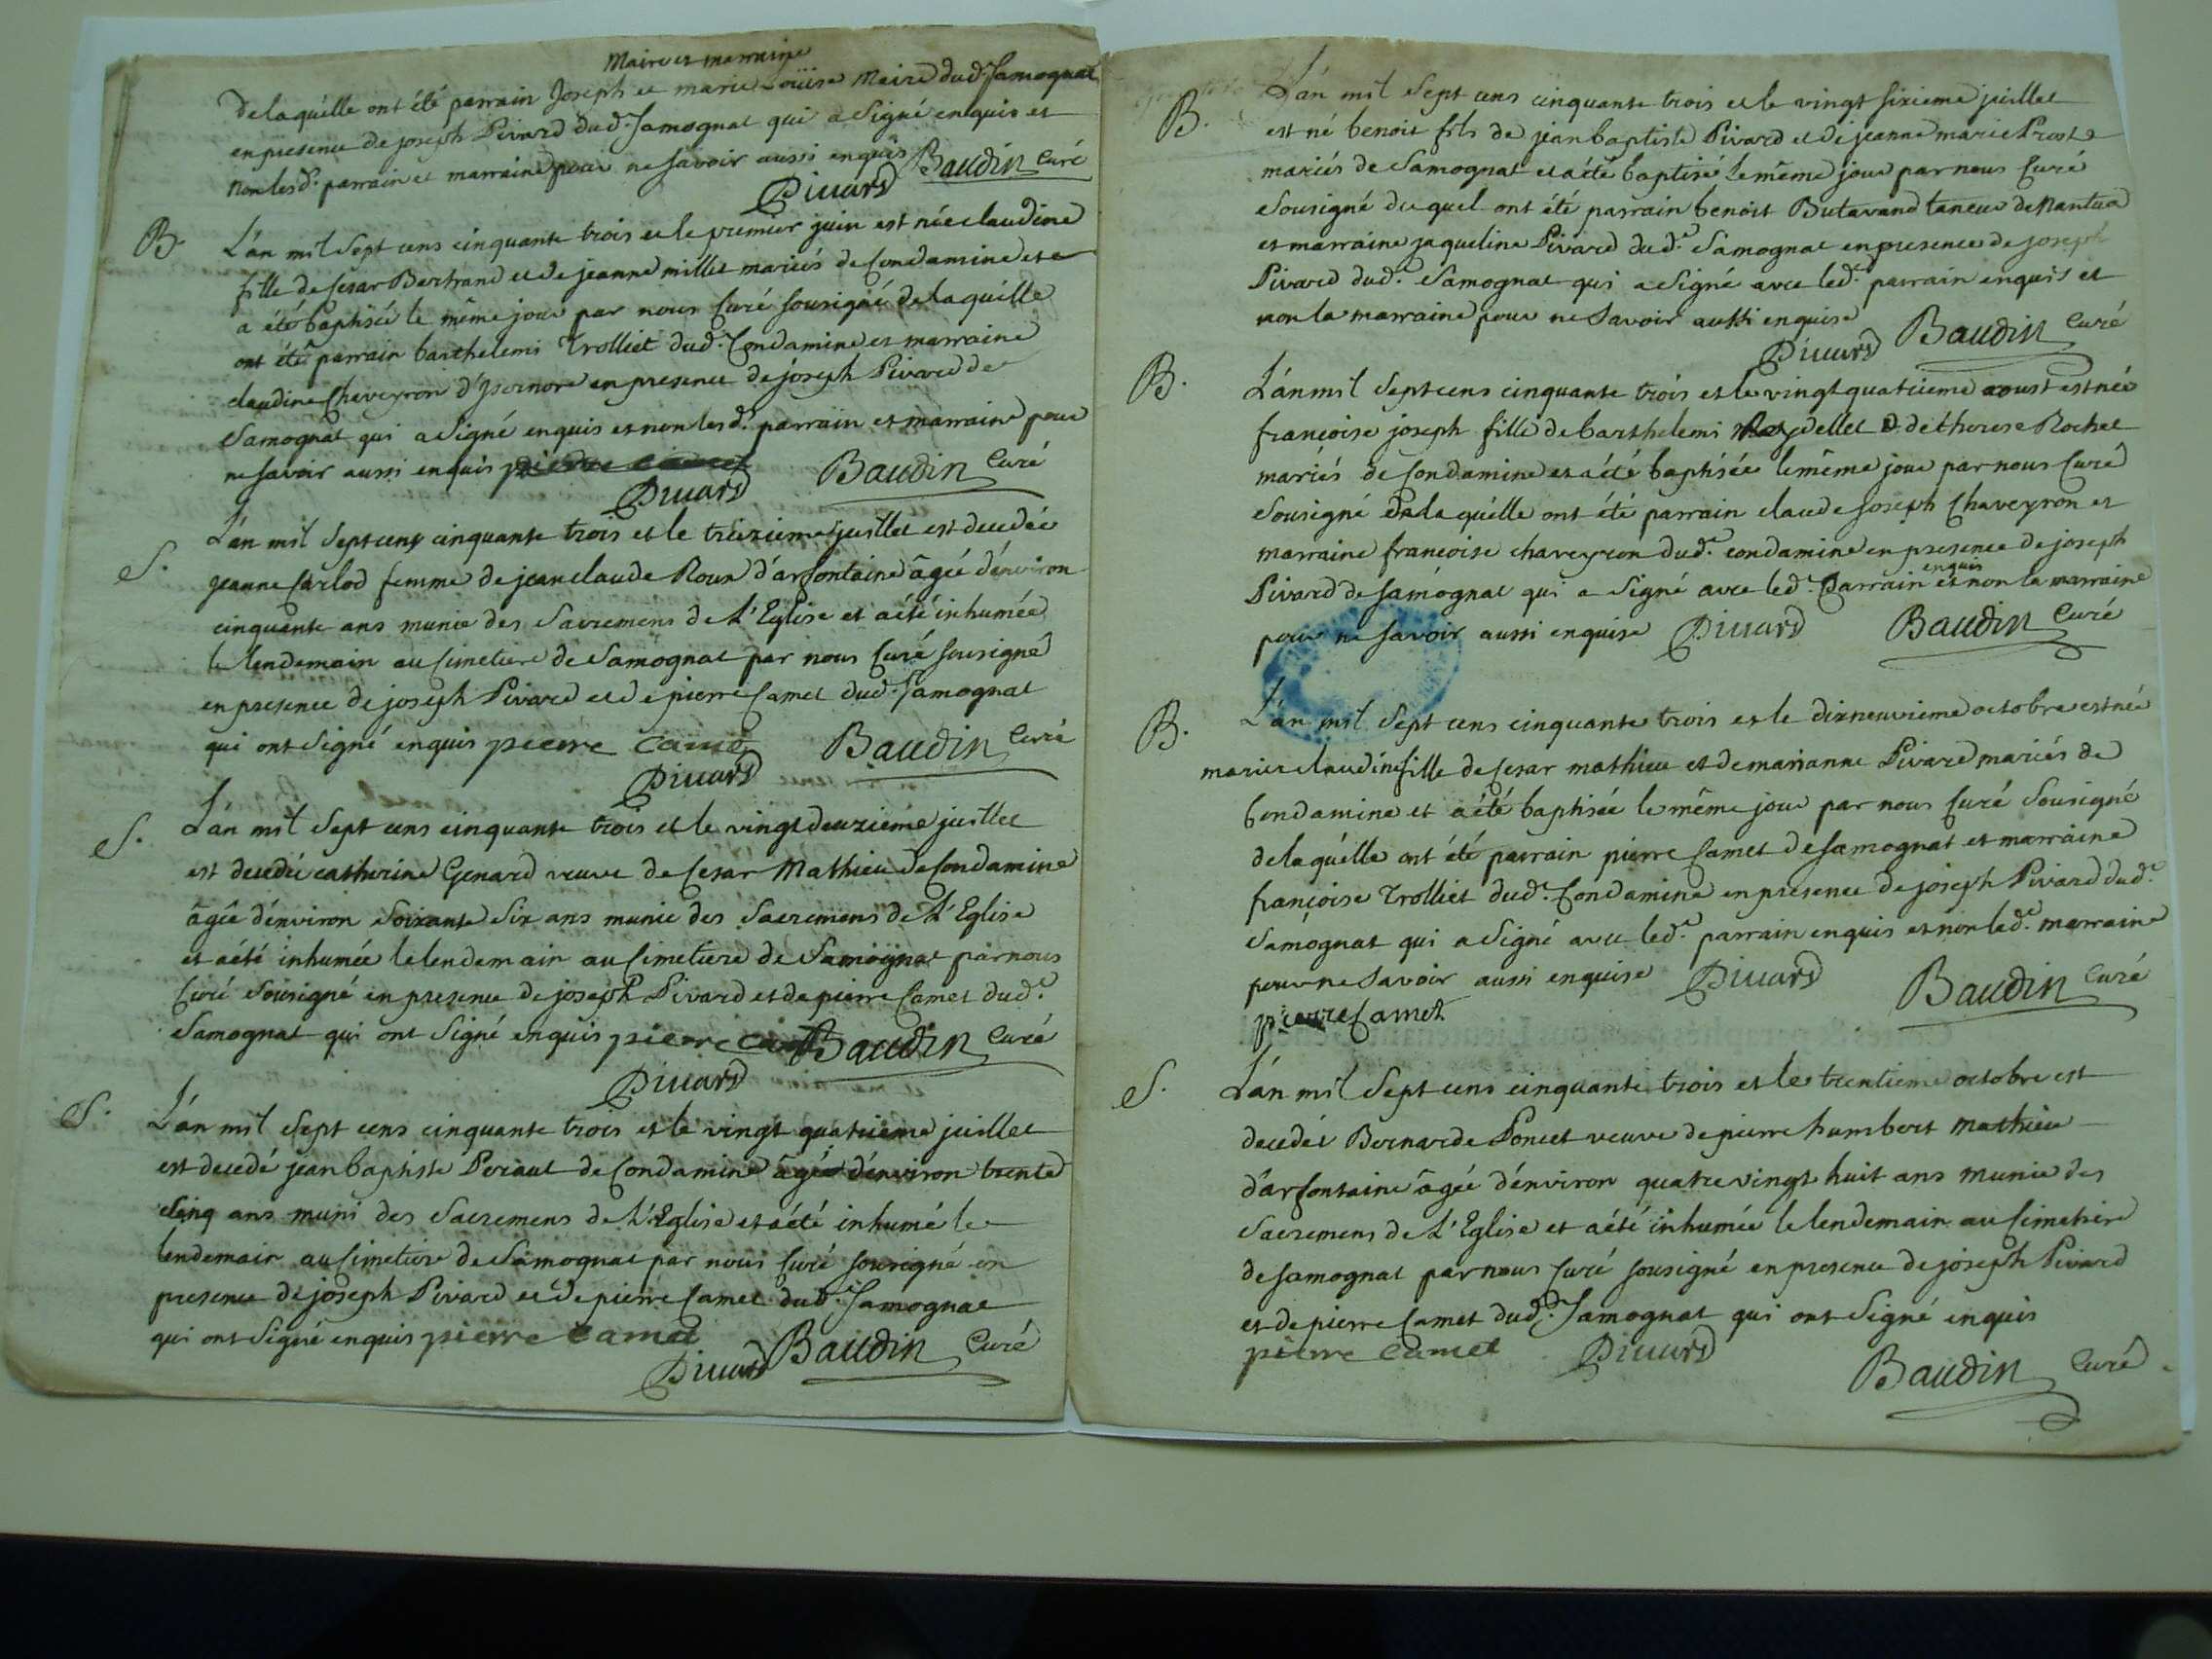 Maire et marraine
de laquélle ont été parrain Joseph et marie Loüise Maire dud.t Samognat
en presence de joseph Pivard dud.t Samognat qui a Signé enquis et
Non lesd.s parrain et marraine pour ne Savoir aussi enquis Baudin Curé
Pivard
B. L'án mil Sept cens cinquante trois et le premier juin est née claudine
fille de Cesar Bertrand et de jeanne millet mariés de Condamine et
a été baptisée le même jour par nous Curé sousigné de laquélle
ont été parrain barthelemi Trolliet dud.t Condamine et marraine
claudine Chaveyron d'Isernore en presence de joseph Pivard de
Samognat qui a Signé enquis et non lesd.s parrain et marraine pour
ne savoir aussi enquis pierre camet
Pivard Baudin Curé
S. L'án mil Sept cens cinquante trois et le treizieme juillet est decedée
jeanne Carlod femme de jean claude Roux d'arfontaine âgée d'énviron
cinquante ans munie des Sacremens de l'Eglise et a été inhumée
le lendemain au Cimetiere de Samognat par nous Curé sousigné
en presence de joseph Pivard et de pierre Camet dud.t Samognat
qui ont Signé enquis pierre camet Baudin Curé
Pivard
S. L'án mil Sept cens cinquante trois et le vingt deuzieme juillet
est decedée catherine Genard veuve de Cesar Mathieu de Condamine
âgée d'énviron Soixante Six ans munie des Sacremens de l'Eglise
et a été inhumée le lendemain au Cimetiere de Samognat par nous
Curé Sousigné en presence de joseph Pivard et de pierre Camet dud.t
Samognat qui ont Signé enquis pierre camet Baudin Curé
Pivard
S. L'án mil Sept cens cinquante trois et le vingt quatrieme juillet
est decedé jean baptiste Peraut de Condamine âgé d'énviron trente
Cinq ans muni des Sacremens de l'Eglise et a été inhumé le
lendemain au Cimetiere de Samognat par nous Curé sousigné en
presence de joseph Pivard et de pierre Camet dud.t Samognat
qui ont Signé enquis pierre camet
Pivard Baudin Curé
B. L'án mil Sept cens cinquante trois et le vingt sixieme juillet
est né benoit fils de jean baptiste Pivard et de jeanne marie Prost
mariés de Samognat et a été baptisé le même jour par nous Curé
Sousigné du quel ont été parrain benoit Butavand taneur de Nantua
et marraine jaqueline Pivard dud.t Samognat en presence de joseph
Pivard dud.t Samognat qui a Signé avec led.t parrain enquis et
non la marraine pour ne Savoir aussi enquise
Pivard Baudin Curé
B. L'án mil Sept cens cinquante trois et le vingt quatrieme aoust est née
francoise joseph fille de barthelemi de therese Rochet
mariés de Condamine et a été baptisée le même jour par nous Curé
Sousigné de la quélle ont été parrain claude Joseph Chaveyron et
marraine francoise chaveyron dud.t condamine en presence de joseph
Pivard de Samognat qui a Signé avec led.t Parrain enquis et non la marraine
pour ne savoir aussi enquise Pivard Baudin Curé
B. L'án mil Sept cens cinquante trois et le dixneuvieme octobre est née
marie claudine fille de Cesar mathieu et de marianne Pivard mariés de
Condamine et a été baptisée le même jour par nous Curé Sousigné
de laquélle ont été parrain pierre Camet de Samognat et marraine
françoise Trolliet dud.t Condamine en presence de joseph Pivard dud.t
Samognat qui a Signé avec led.t parrain enquis et non lad.e marraine
pour ne Savoir aussi enquise Pivard Baudin Curé
pierre Camet
S. L'án mil Sept cens cinquante trois et le trentieme octobre est
decedée Bernarde Poncet veuve de pierre humbert mathieu
d'arfontaine âgée d'énviron quatre vingt huit ans munie des
Sacremens de l'Eglise et a été inhumée le lendemain au Cimetiere
de Samognat par nous Curé sousigné en presence de joseph Pivard
et de pierre Camet dud.t Samognat qui ont Signé enquis
pierre camet Pivard
Baudin Curé